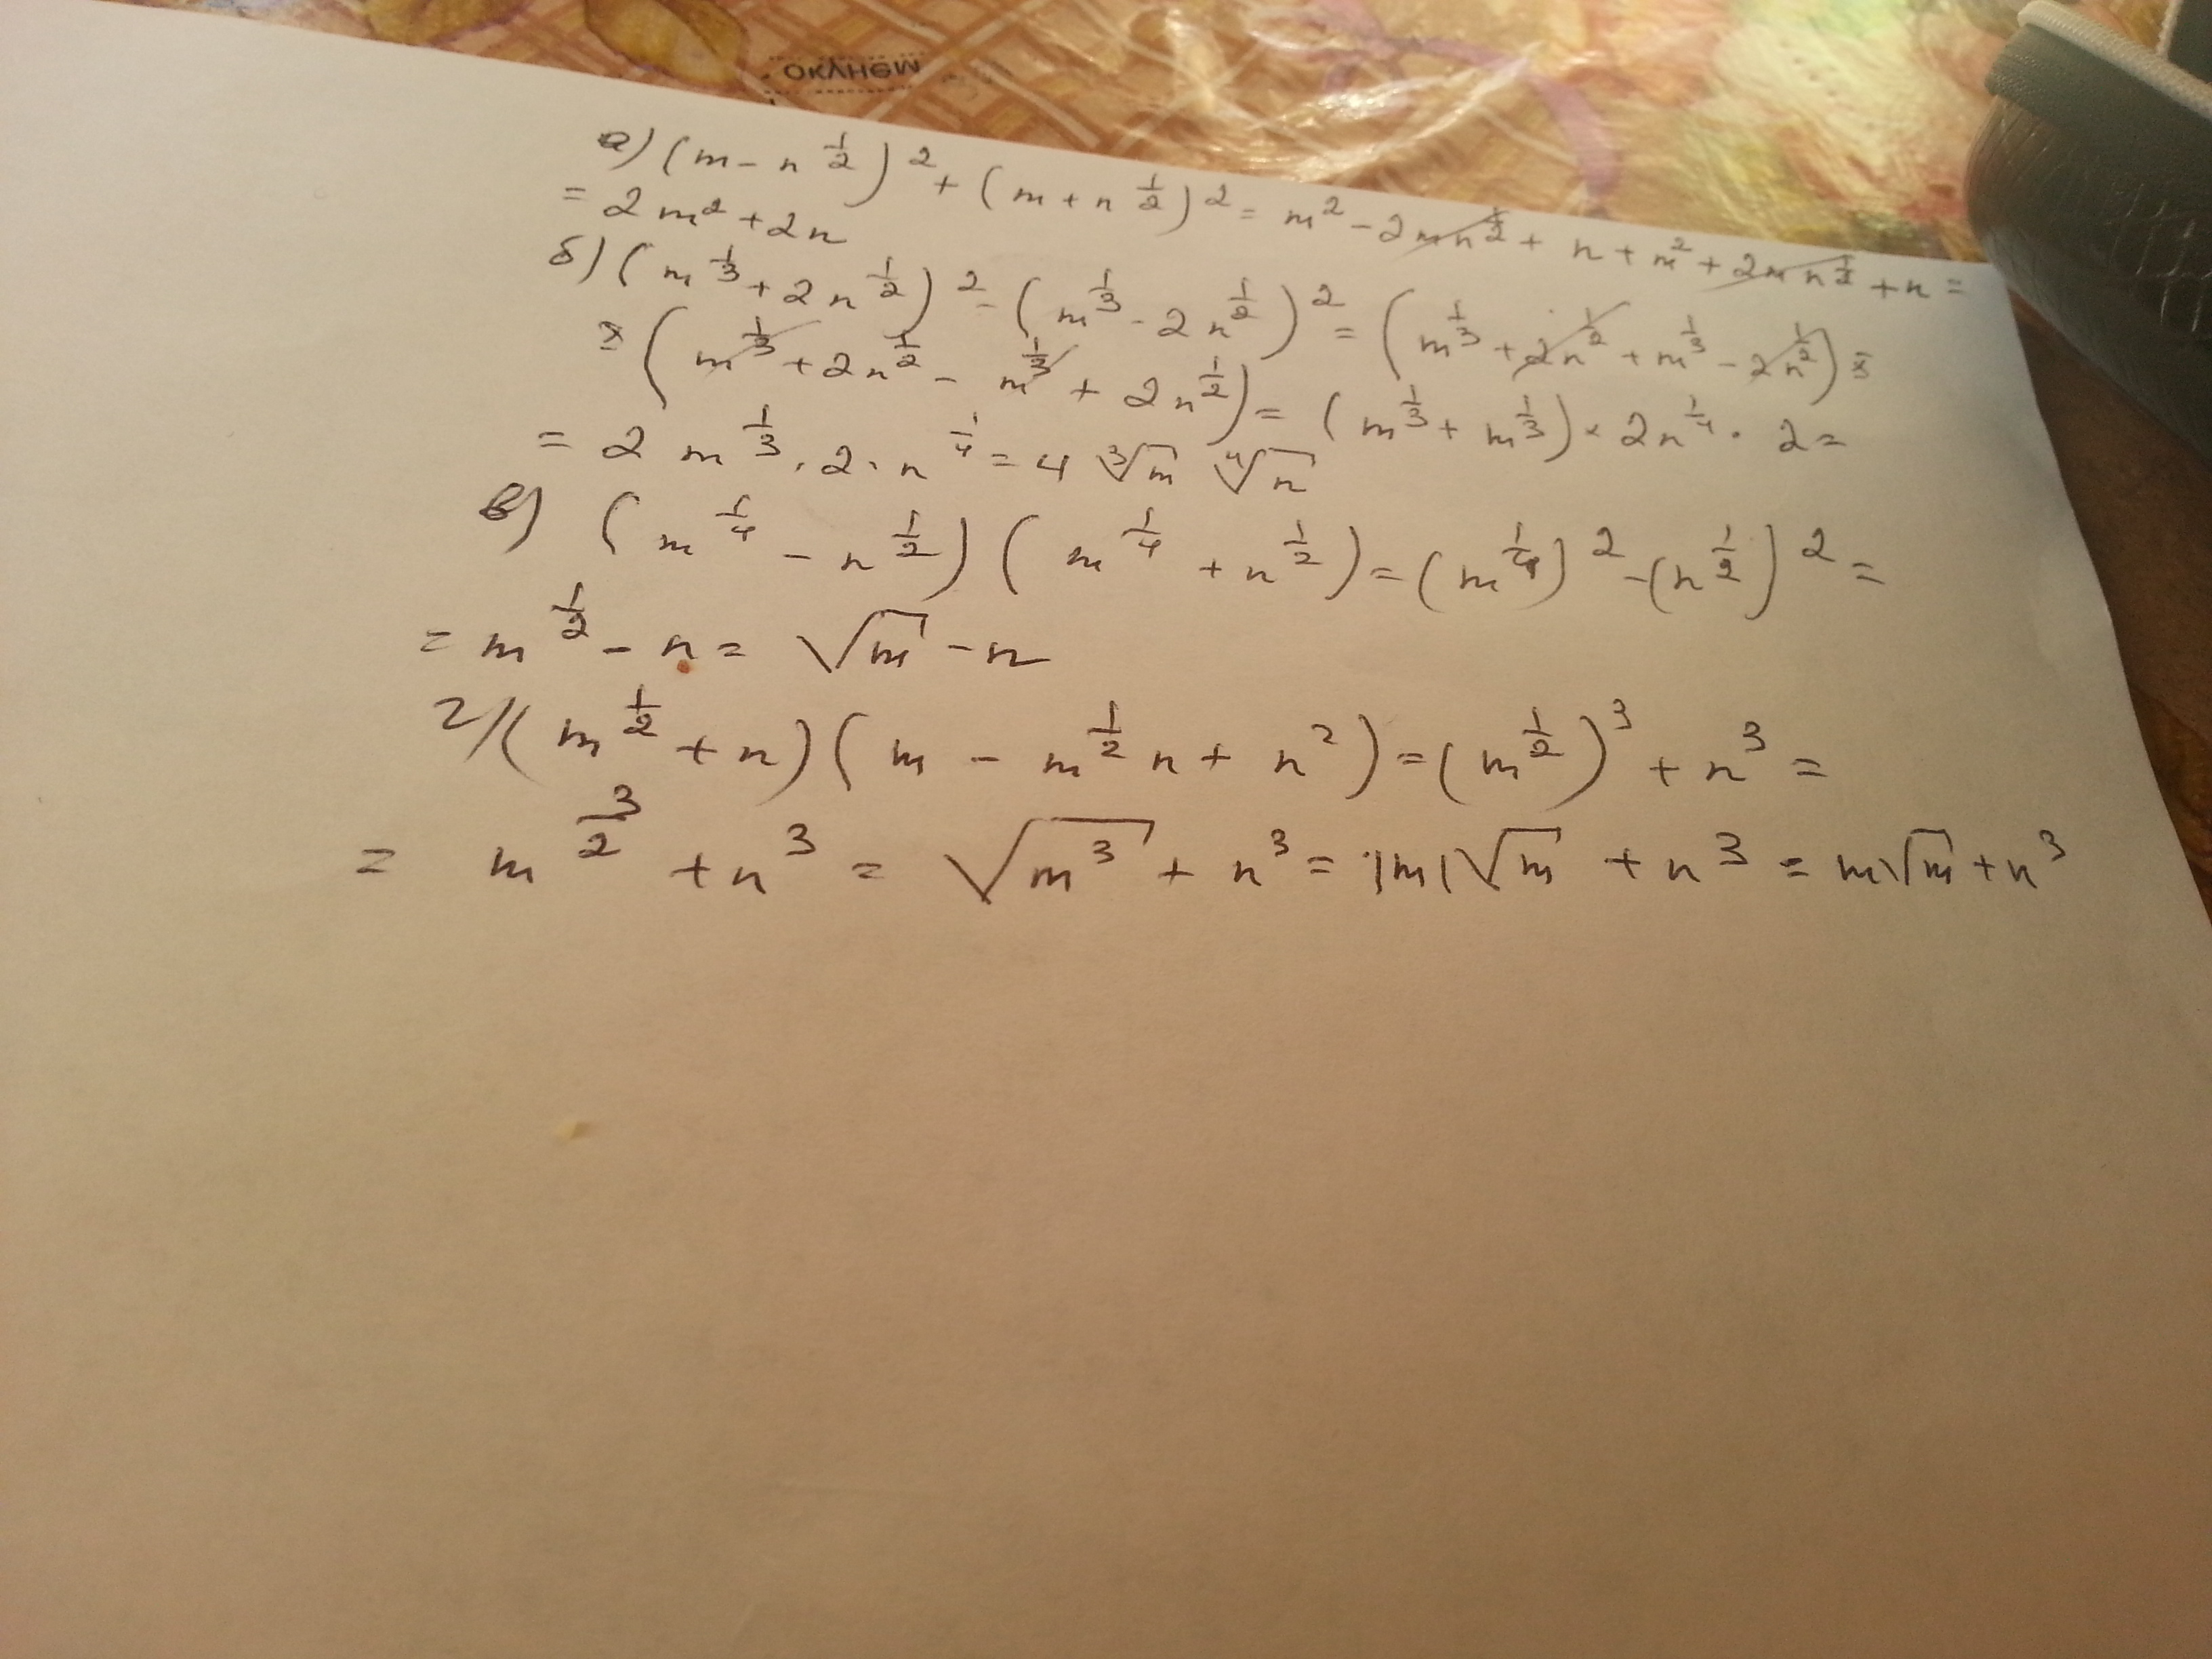 ОКУНӨМ
а) (m - n^{1/2})^2 + (m + n^{1/2})^2 = m^2 - 2mn^{1/2} + n + m^2 + 2mn^{1/2} + n =
= 2m^2 + 2n
б) (m^{1/3} + 2n^{1/2})^2 - (m^{1/3} - 2n^{1/2})^2 = (m^{1/3} + 2n^{1/2} + m^{1/3} - 2n^{1/2}) ×
× (m^{1/3} + 2n^{1/2} - m^{1/3} + 2n^{1/2}) = (m^{1/3} + m^{1/3}) × 2n^{1/4} · 2 =
= 2m^{1/3} · 2 · n^{1/4} = 4 ∛m ∜n
в) (m^{1/4} - n^{1/2}) (m^{1/4} + n^{1/2}) = (m^{1/4})^2 - (n^{1/2})^2 =
= m^{1/2} - n = √m - n
г) (m^{1/2} + n) (m - m^{1/2} n + n^2) = (m^{1/2})^3 + n^3 =
= m^{3/2} + n^3 = √m^3 + n^3 = |m|√m + n^3 = m√m + n^3